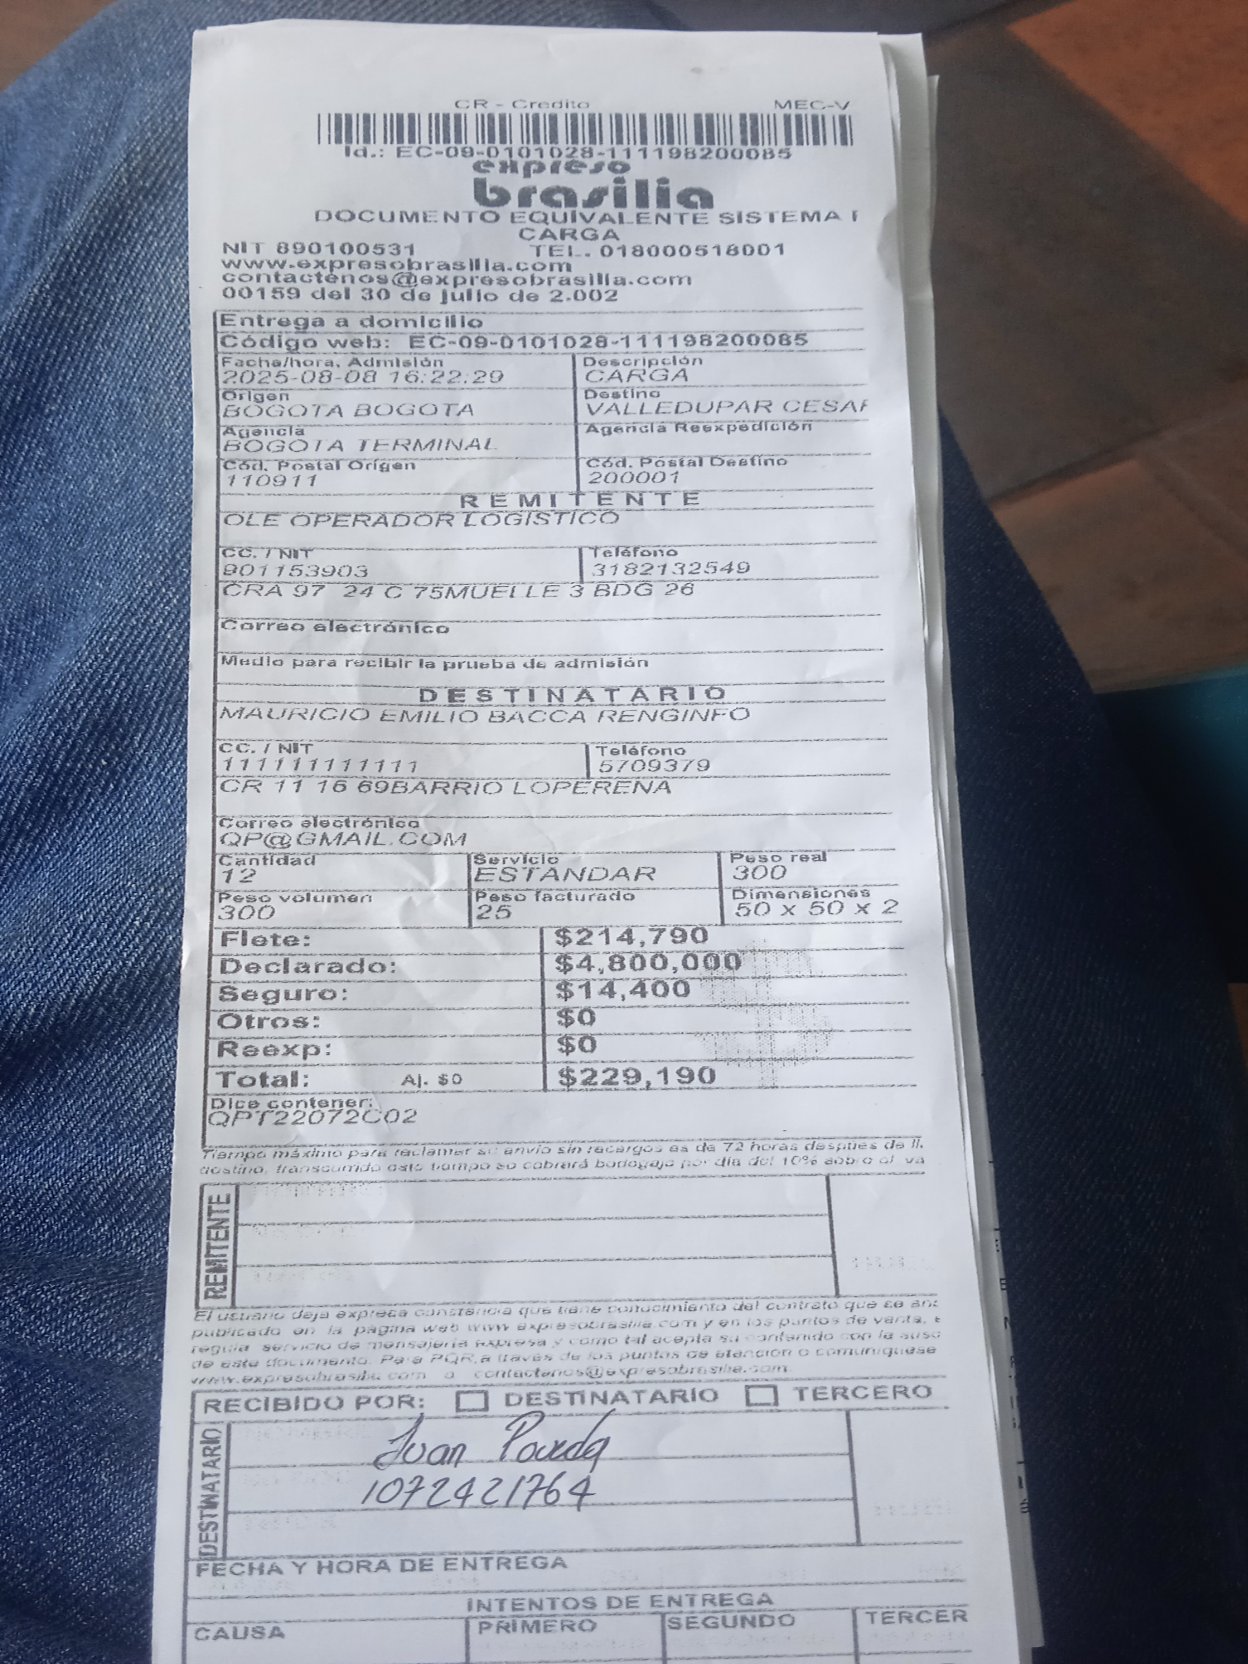 CR - Credito MEC-V
Id.: EC-09-0101028-111198200085
expreso
brasilia
DOCUMENTO EQUIVALENTE SISTEMA
CARGA
NIT 890100531 TEL. 018000518001
www.expresobrasilia.com
contactenos@expresobrasilia.com
00159 del 30 de julio de 2.002
Entrega a domicilio
Código web: EC-09-0101028-111198200085
Fecha/hora, Admisión Descripción
2025-08-08 16:22:29 CARGA
Origen Destino
BOGOTA BOGOTA VALLEDUPAR CESAR
Agencia Agencia Reexpedición
BOGOTA TERMINAL
Cód. Postal Orígen Cód. Postal Destino
110911 200001
REMITENTE
OLE OPERADOR LOGISTICO
CC. / NIT Teléfono
901153903 3182132549
CRA 97 24 C 75MUELLE 3 BDG 26
Correo electrónico
Medio para recibir la prueba de admisión
DESTINATARIO
MAURICIO EMILIO BACCA RENGINFO
CC. / NIT Teléfono
111111111111 5709379
CR 11 16 69BARRIO LOPERENA
Correo electrónico
QP@GMAIL.COM
Cantidad Servicio Peso real
12 ESTANDAR 300
Peso volumen Peso facturado Dimensiones
300 25 50 x 50 x 2
Flete: $214,790
Declarado: $4,800,000
Seguro: $14,400
Otros: $0
Reexp: $0
Total: Aj. $0 $229,190
Dice contener:
QPT22072C02
Tiempo máximo para reclamar su envio sin recargos es de 72 horas despues de ll.
destino, transcurrido este tiempo se cobrará bodegaje por dia del 10% sobre el va
REMITENTE
El usuario deja expresa constancia que tiene conocimiento del contrato que se
publicado en la pagina web www expresobrasilia com y en los puntos de venta,
regula servicio de mensajeria expresa y como tal acepta su contenido con la susc
de este documento. Para PQR,a través de los puntos de atención o comuniquese
www.expresobrasilia com o contactenos@expresobrasilia.com.
RECIBIDO POR: DESTINATARIO TERCERO
DESTINATARIO
Juan Poveda
1072421764
FECHA Y HORA DE ENTREGA
INTENTOS DE ENTREGA
CAUSA PRIMERO SEGUNDO TERCER